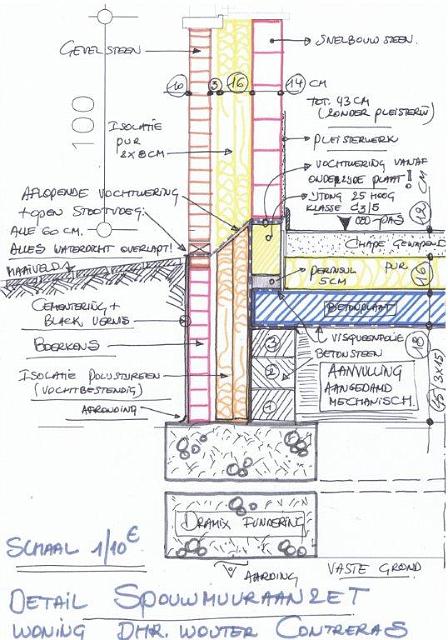 GEVELSTEEN
SNELBOUWSTEEN.
10 3 16 14 CM
TOT. 43 CM
(ZONDER PLEISTERW)
100
ISOLATIE
PUR
2x8CM
PLEISTERWERK
VOCHTWERING VANAF
ONDERZIJDE PLAAT!
YTONG 25 HOOG
KLASSE C3/5
AFLOPENDE VOCHTWERING
+ OPEN STOOTVOEG.
ALLE 60 CM.
ALLES WATERDICHT OVERLAPT!
000-PAS
CM
12
CHAPE GEWAPEND
MAAIVELD
PUR
16
PERINSUL
5CM
CEMENTERING +
BLACK VERNIS
BETONPLAAT
BOERKENS
VISQUEENFOLIE
BETONSTEEN
18
3
2
1
ISOLATIE POLYSTYREEN
(VOCHTBESTENDIG)
AANVULLING
AANGEDAMD
MECHANISCH.
(3x15)
AFRONDING
DRAMIX FUNDERING
SCHAAL 1/10E
AARDING
VASTE GROND
DETAIL SPOUWMUURAANZET
WONING DHR. WOUTER CONTRERAS